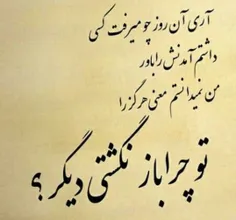 آری آن روز چو میرفت کسی
داشتم آمدنش را باور
من نمیدانستم معنی هرگز را
تو چرا باز نگشتی دیگر ؟